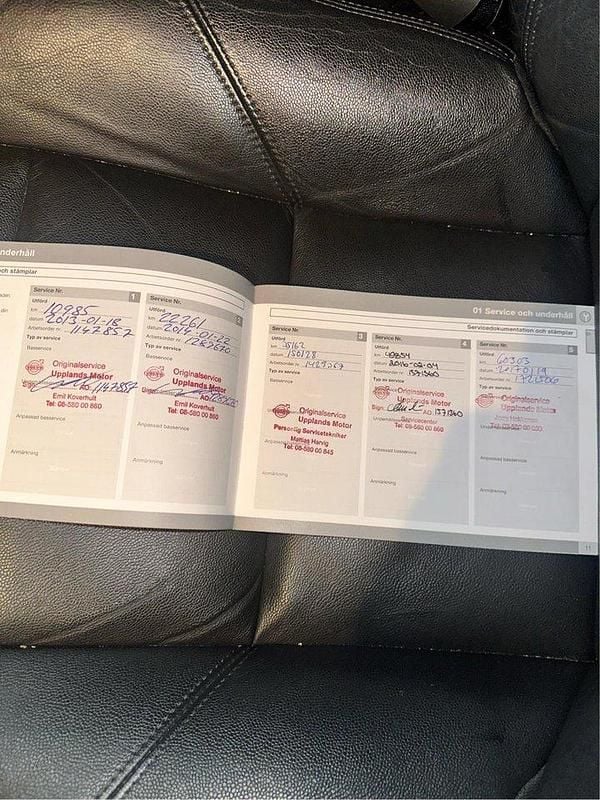 nderhåll
och stämplar
Service Nr. 1
Utförd
km 10985
datum 2013-01-18
Arbetsorder nr 1147857
Typ av service
Basservice
Originalservice
Upplands Motor
Sign. AO. 1147857
Emil Koverhult
Tel: 08-580 00 860
Anpassad basservice
Anmärkning
Service Nr.
Utförd
km 22261
datum 2014-01-22
Arbetsorder nr 1282670
Typ av service
Basservice
Originalservice
Upplands Motor
Sign. AO.
Emil Koverhult
Tel: 08-580 00 860
Anpassad basservice
Anmärkning
01 Service och underhåll
Servicedokumentation och stämplar
Service Nr. 3
Utförd
km 35162
datum 150128
Arbetsorder nr
Typ av service
Basservice
Originalservice
Upplands Motor
Personlig Servicetekniker
Mattias Harvig
Tel: 08-580 00 845
Anmärkning
Service Nr. 4
Utförd
km
datum 2016-02-04
Arbetsorder nr 1571360
Typ av service
Originalservice
Upplands Motor
Sign. AO. 1571360
Servicecenter
Tel: 08-580 00 860
Anpassad basservice
Anmärkning
Service Nr. 5
Utförd
km 60303
datum 20170119
Arbetsorder nr
Typ av service
Originalservice
Upplands Motor
Anpassad basservice
Anmärkning
11